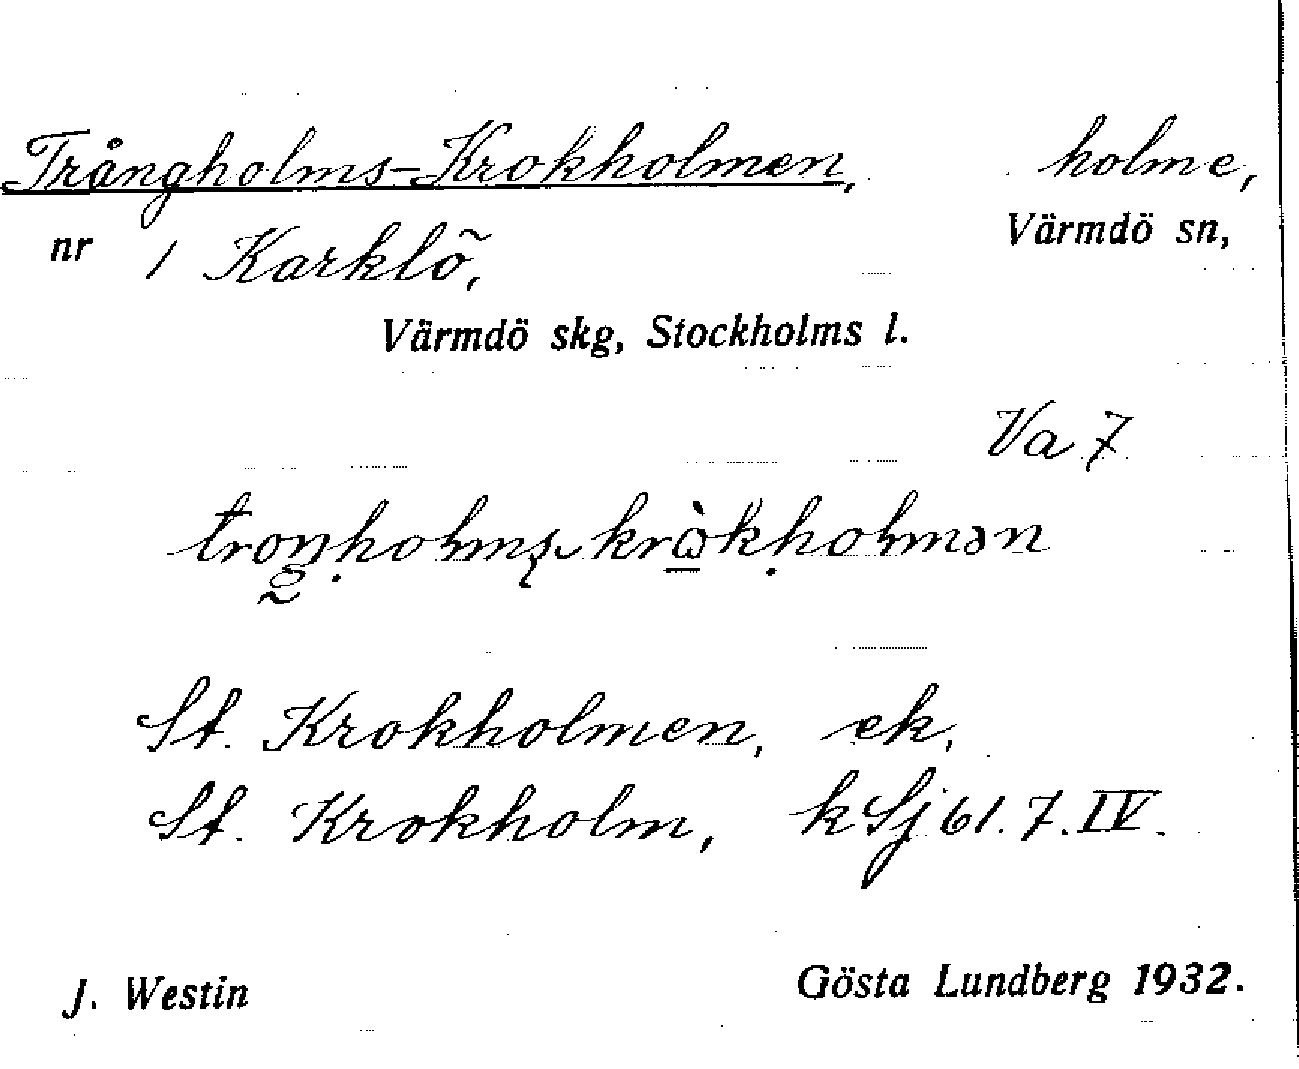 Trångholms-Krokholmen, holme,
nr 1 Karklö, Värmdö sn,
Värmdö skg, Stockholms l.
Va 7
St. Krokholmen, ek,
St. Krokholm, kSj 61.7.IV.
J. Westin Gösta Lundberg 1932.